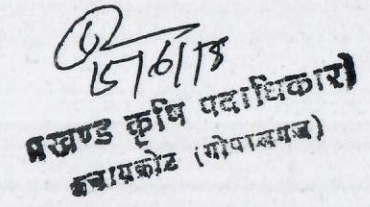 15/6/18
प्रखण्ड कृषि पदाधिकारी
कुचायकोट (गोपालगंज)